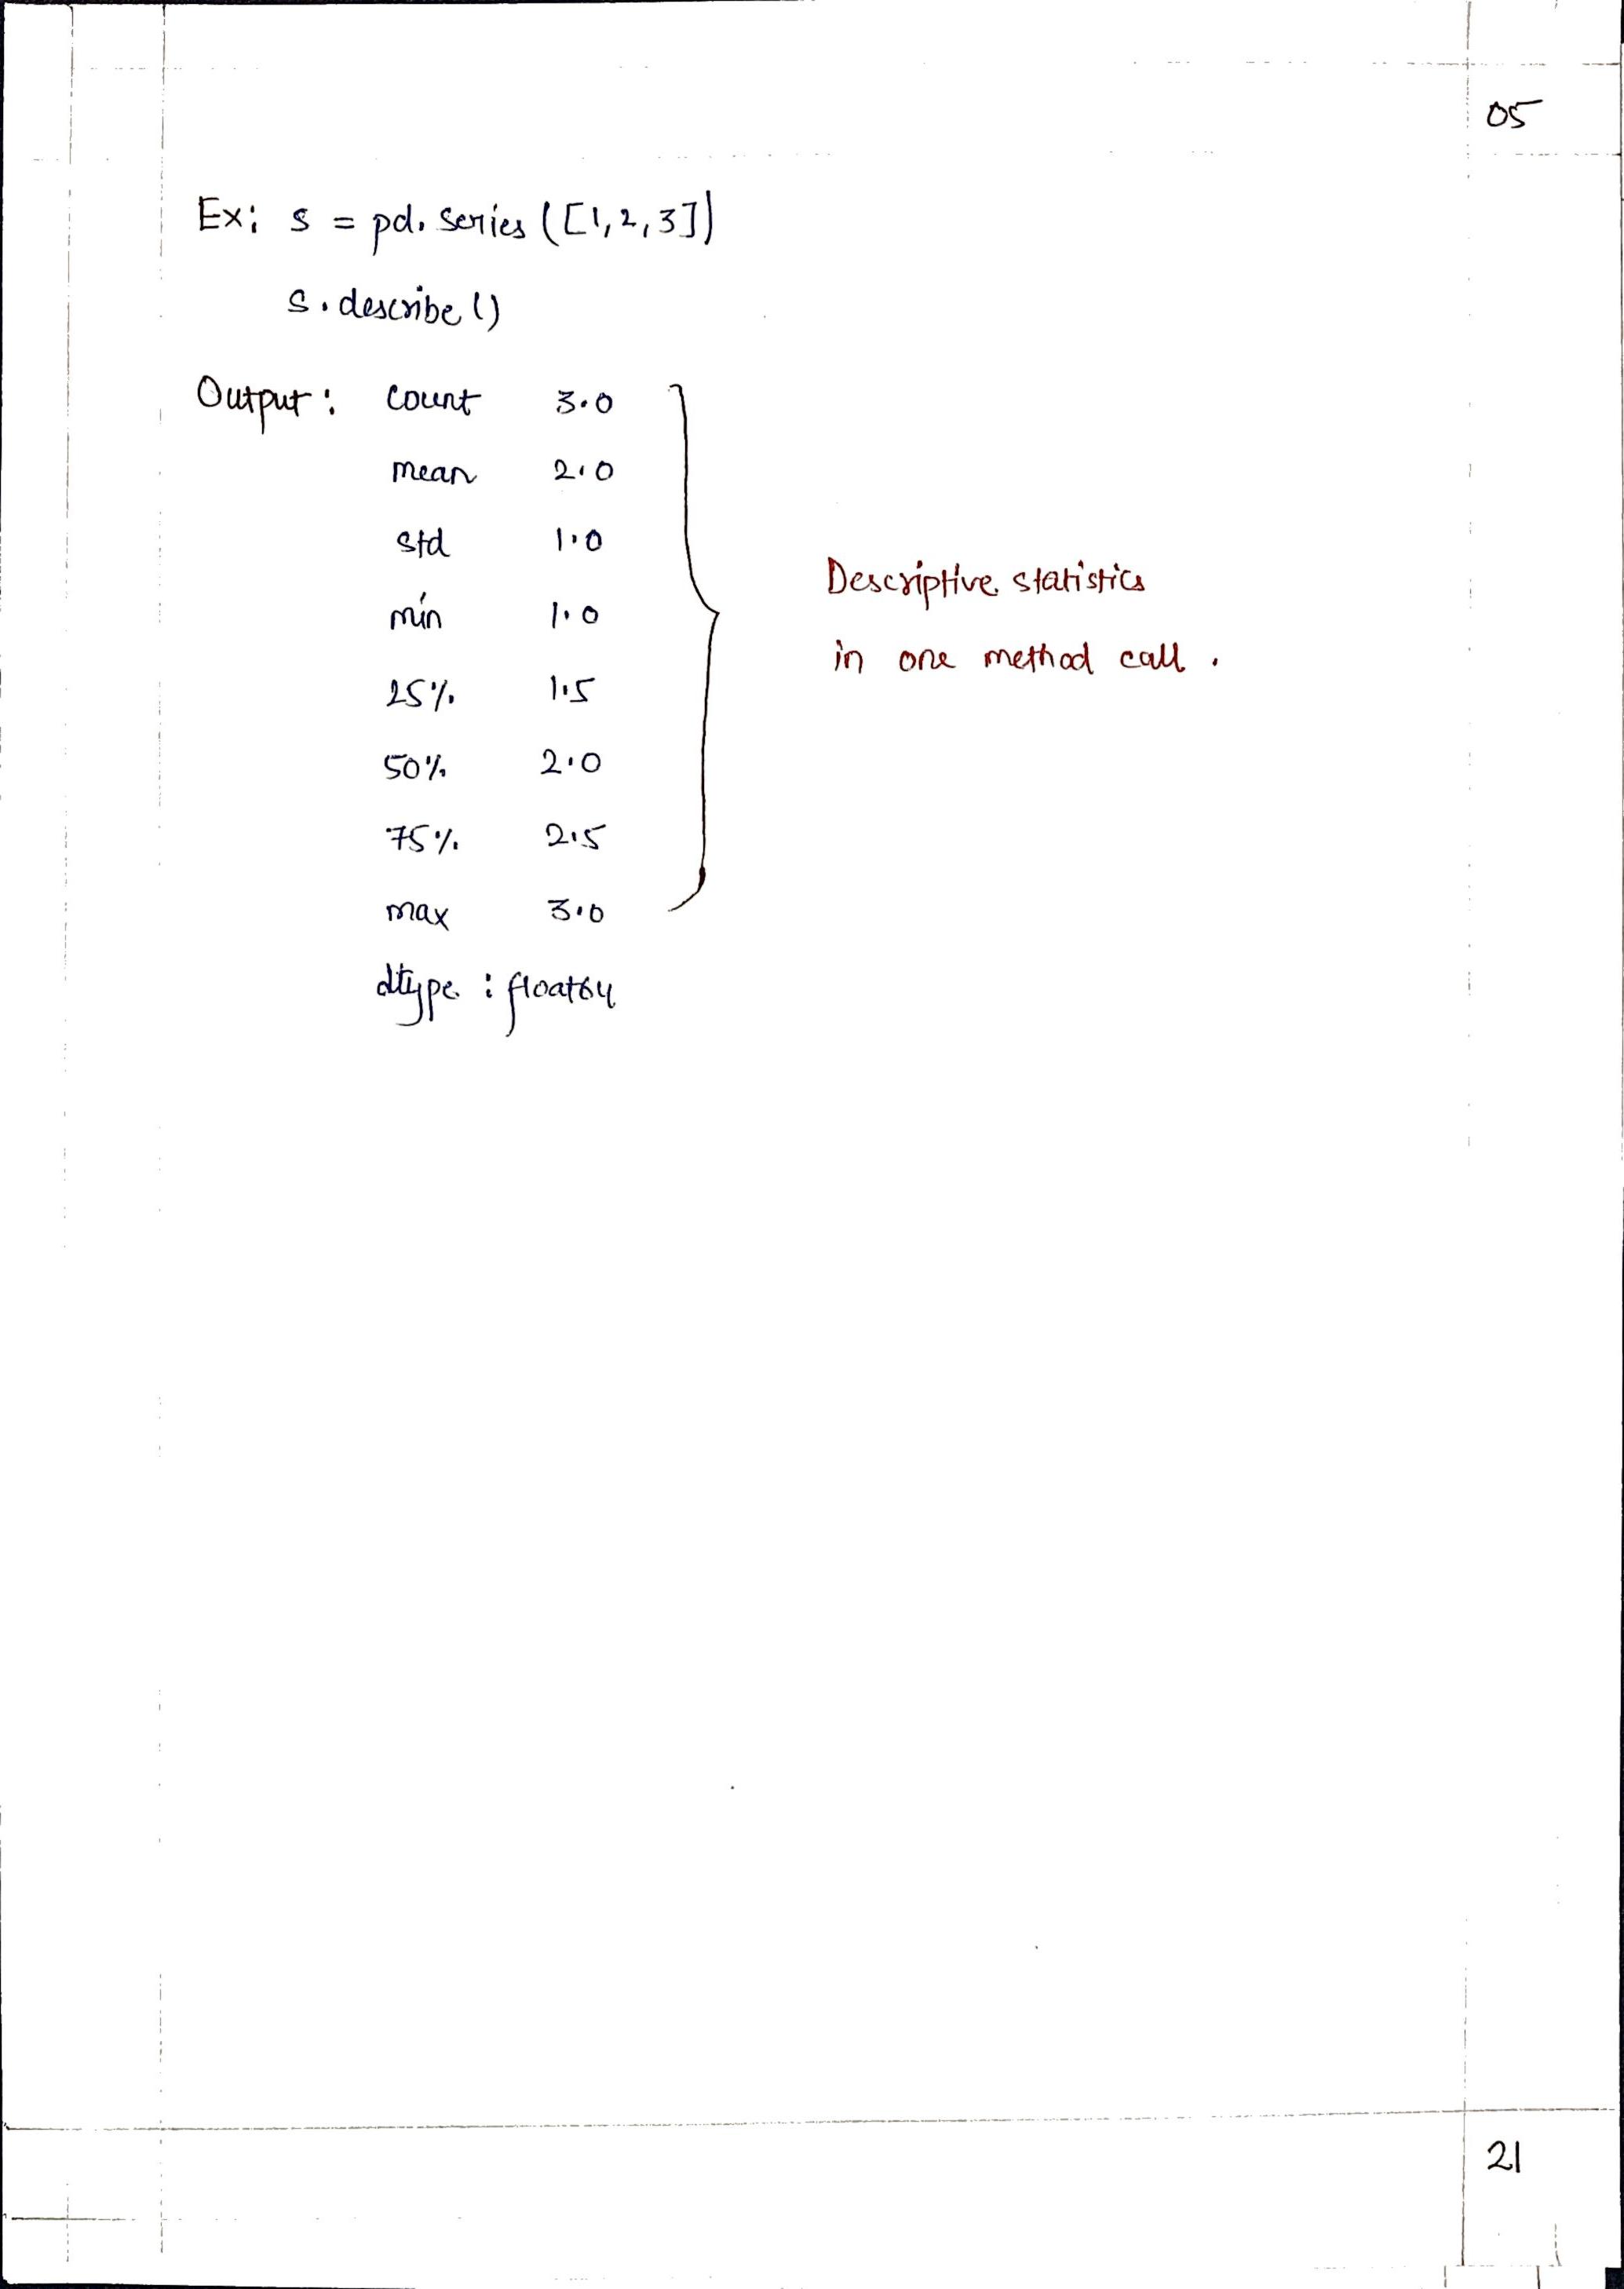 05
Ex: s = pd. series ([1,2,3])
s. describe ()
Output: count 3.0
mean 2.0
std 1.0
min 1.0
25% 1.5
50% 2.0
75% 2.5
max 3.0
dtype : float64
Descriptive statistics
in one method call .
21